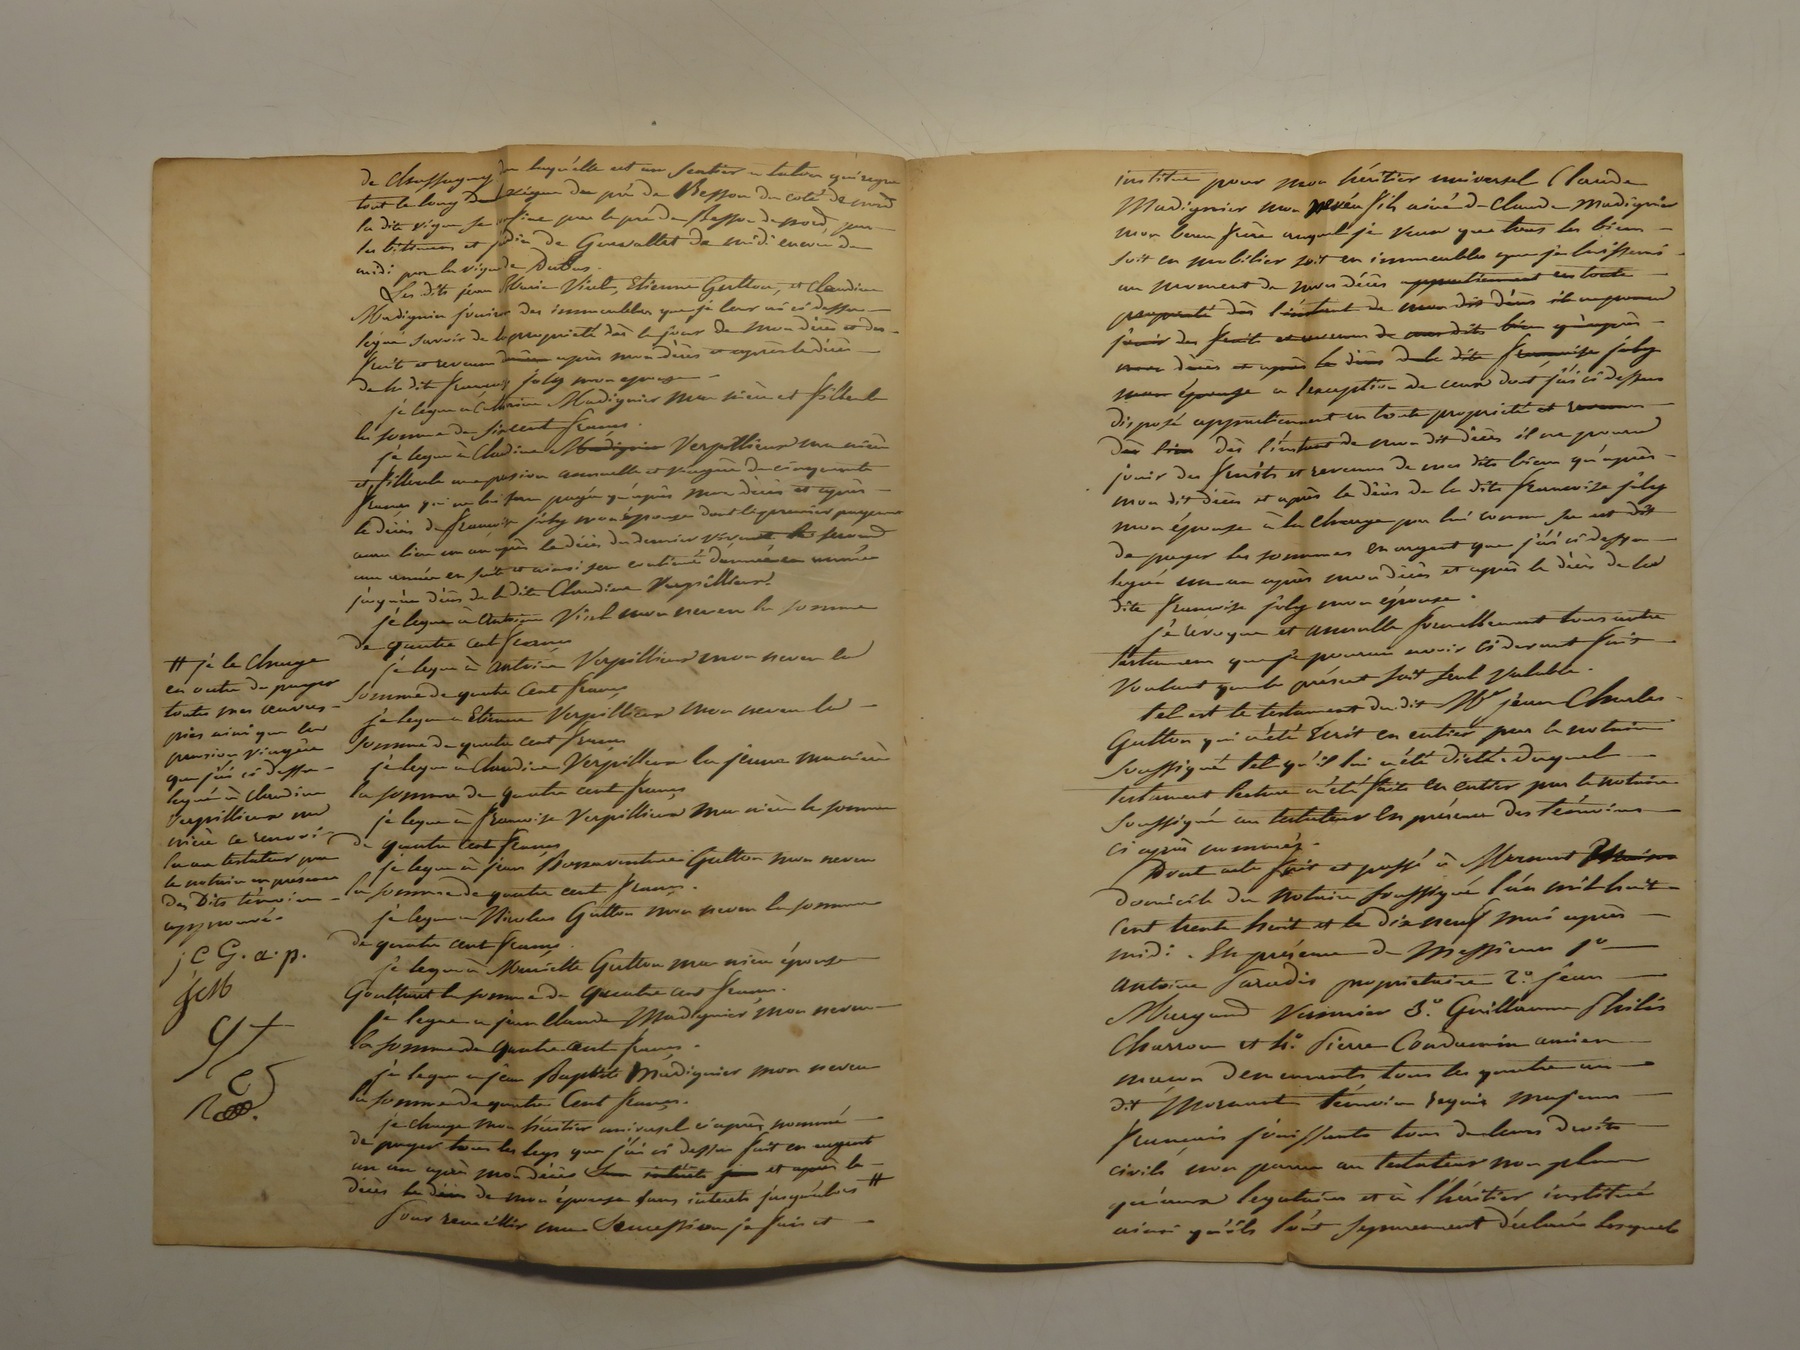 de Chassagny de laquelle est un sentier a talon qui règne
tout le long de la vigne du pré de Besson du coté de nord
la dite vigne se confine par le pré de Besson de nord, par
les bâtimens et jardin de Gensallet de midi encore de
midi par la vigne de Dubas.
Les dits jean Marie Viel, Etienne Gutton, et Claudine
Madignier jouiront des immeubles que je leur ai ci dessus
légué savoir de la propriété dès le jour de mon décès et des
fruit et revenu après mon décès et après le décès
de la dite françoise joly mon épouse
je legue à Catherine Madignier ma nièce et filleule
la somme de six cent francs.
je legue à Claudine Madignier Verpillieux ma nièce
et fillieule une pension annuelle et viagère de cinquante
francs qui ne lui sera payée qu'après mon décès et après
le décès de françoise joly mon épouse dont le premier payement
aura lieu un an après le décès du dernier vivant le second
une année en suite et ainsi sera continué d'année en année
jusqu'au décès de la dite Claudine Verpillieux.
je legue à Antoine Viel mon neveu la somme
de quatre cent francs
je legue à Antoine Verpillieux mon neveu la
somme de quatre cent francs
je legue à Etienne Verpillieux mon neveu la
somme de quatre cent francs
je legue à Claudine Verpillieux la jeune ma nièce
la somme de quatre cent francs
je legue à françoise Verpillieux ma nièce la somme
de quatre cent francs
je legue à jean Bonnaventure Gutton mon neveu
la somme de quatre cent francs.
je legue à Nicolas Gutton mon neveu la somme
de quatre cent francs.
je legue à Mariette Gutton ma nièce épouse
Goutturet la somme de quatre cent francs.
je legue à jean Claude Madignier mon neveu
la somme de quatre cent francs.
je legue à jean Baptiste Madignier mon neveu
la somme de quatre Cent francs.
je charge mon héritier universel ci après nommé
de payer tous les legs que j'ai ci dessus fait en argent
un an après mon décès sans intérêts et après le
décès le décès de mon épouse sans intérêts jusqu'alors #
Pour receuillir ma succession je fais et
# je le charge
en outre de payer
toutes mes œuvres
pies ainsi que la
pension viagère
que j'ai ci dessus
legué à Claudine
Verpillieux ma
nièce ce renvoi
lu au testateur par
le notaire en présence
des Dits témoins
approuvé.
j C G. a. p.
institue pour mon héritier universel Claude
Madignier mon neveu fils ainé de Claude Madignier
mon beau frère auquel je veux que tous les biens
soit en mobilier soit en immeubles que je laisserai
au moment de mon décès appartiennent en toute
propriété dès l'instant de mon dit décès il ne pourra
jouir des fruits et revenus de mes dits biens qu'après
mon décès et après le décès de la dite françoise joly
mon épouse a l'exception de ceux dont j'ai ci dessus
disposé appartiennent en toute propriété et
dès l'ins dès l'instant de mon dit décès il ne pourra
jouir des fruits et revenus de mes dits biens qu'après
mon dit décès et après le décès de la dite françoise joly
mon épouse à la charge par lui comme sa est dit
de payer les sommes en argent que j'ai ci dessus
legué un an après mon décès et après le décès de la
dite françoise joly mon épouse.
je révoque et annulle formellement tous autre
testamens que je pourrai avoir ci devant fait
voulant que le présent soit seul valable.
tel est le testament du dit Mr jean Charles
Gutton qui a été écrit en entier par le notaire
soussigné tel qu'il lui a été dicté duquel
testament lecture a été faite en entier par le notaire
soussigné au testateur en présence des témoins
ci après nommés.
Dont acte fait et passé à Mornant
domicile du notaire soussigné l'an mil huit
cent trente huit et le dix neuf mai après
midi. En présence de Messieurs 1o
Antoine Paradis propriétaire 2o jean
Margand Vannier 3o Guillaume Philis
Charron et 4o Pierre Condamin ancien
maçon demeurants tous les quatre au
dit Mornant témoins requis majeurs
français jouissants tous de leurs droits
civils non parens au testateur non plus
qu'aux legataires et à l'héritier institué
ainsi qu'ils l'ont séparement déclaré lesquels